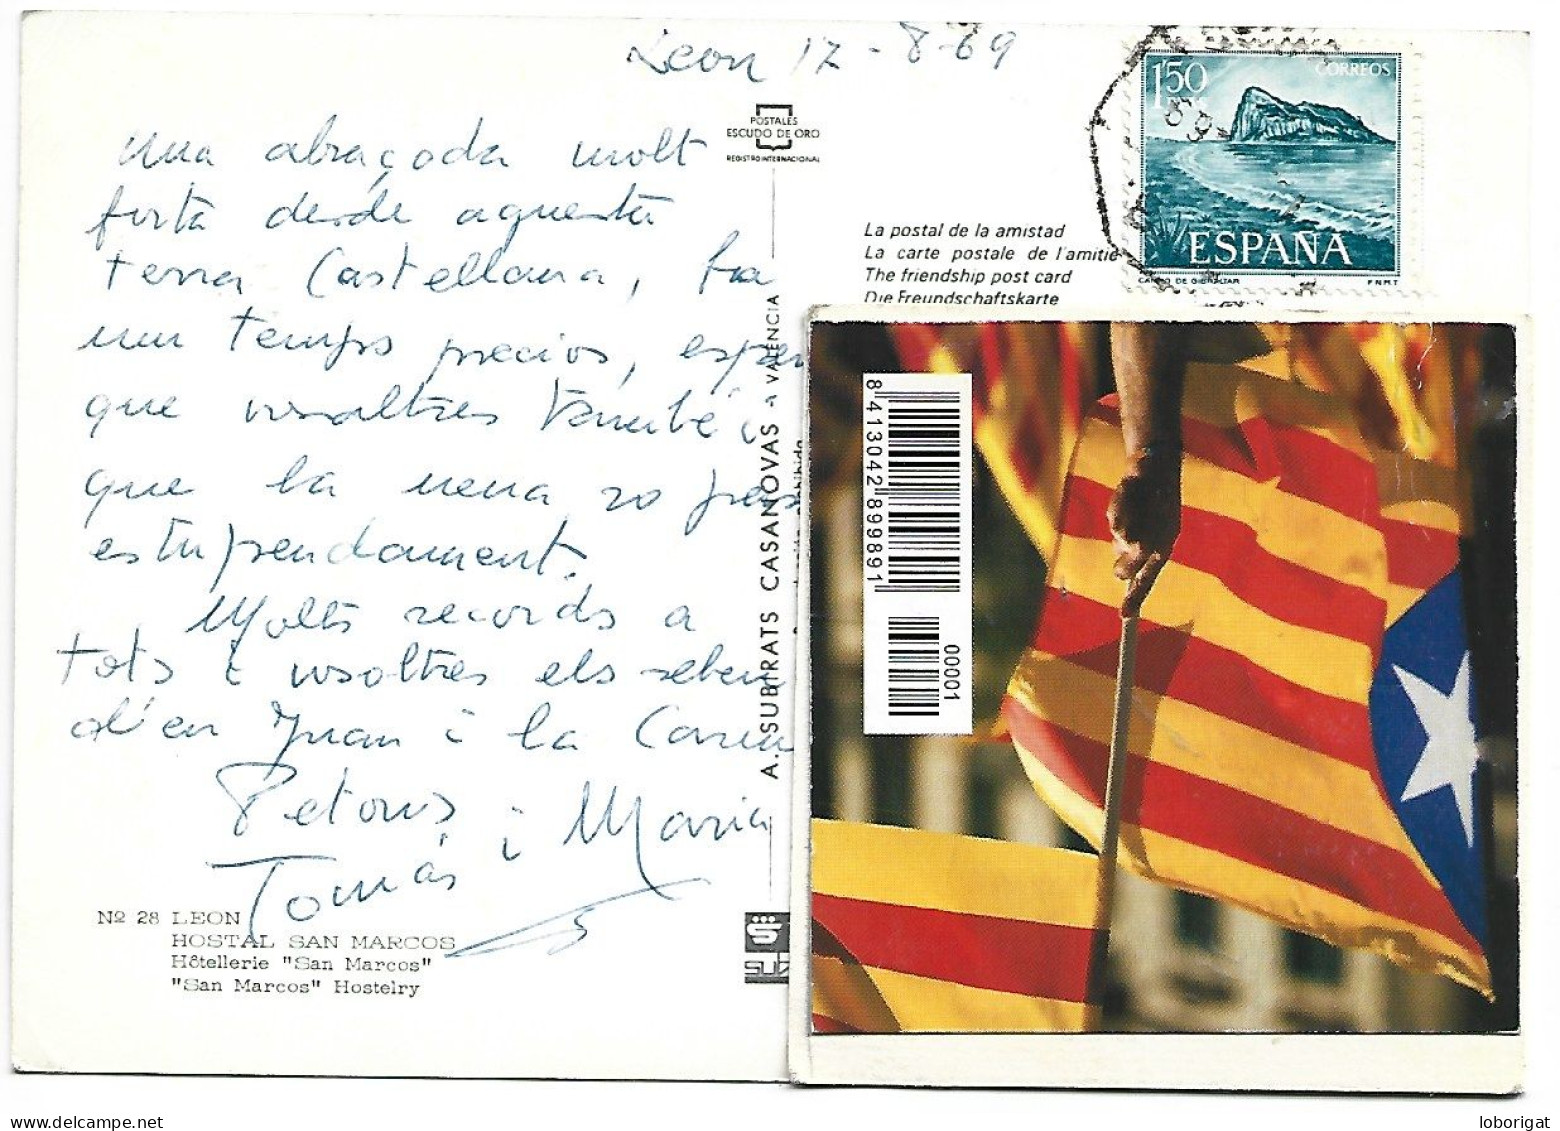 Leon 17-8-69
una abraçada molt
forta desde aquesta
terra Castellana, fa
un temps precios, esper
que vosaltres també i
que la nena
estupendament.
Molts records a
tots i vosaltres els
d'en Juan i la
Petons
Tomás i Maria
Nº 28 LEON
HOSTAL SAN MARCOS
Hôtellerie "San Marcos"
"San Marcos" Hostelry
POSTALES
ESCUDO DE ORO
REGISTRO INTERNACIONAL
A. SUBIRATS CASANOVAS - VALENCIA
La postal de la amistad
La carte postale de l'amitie
The friendship post card
Die Freundschaftskarte
1'50
PTAS
CORREOS
ESPAÑA
CAMPO DE GIBRALTAR
F.N.M.T
69
8 413042 899891
00001
loborigat